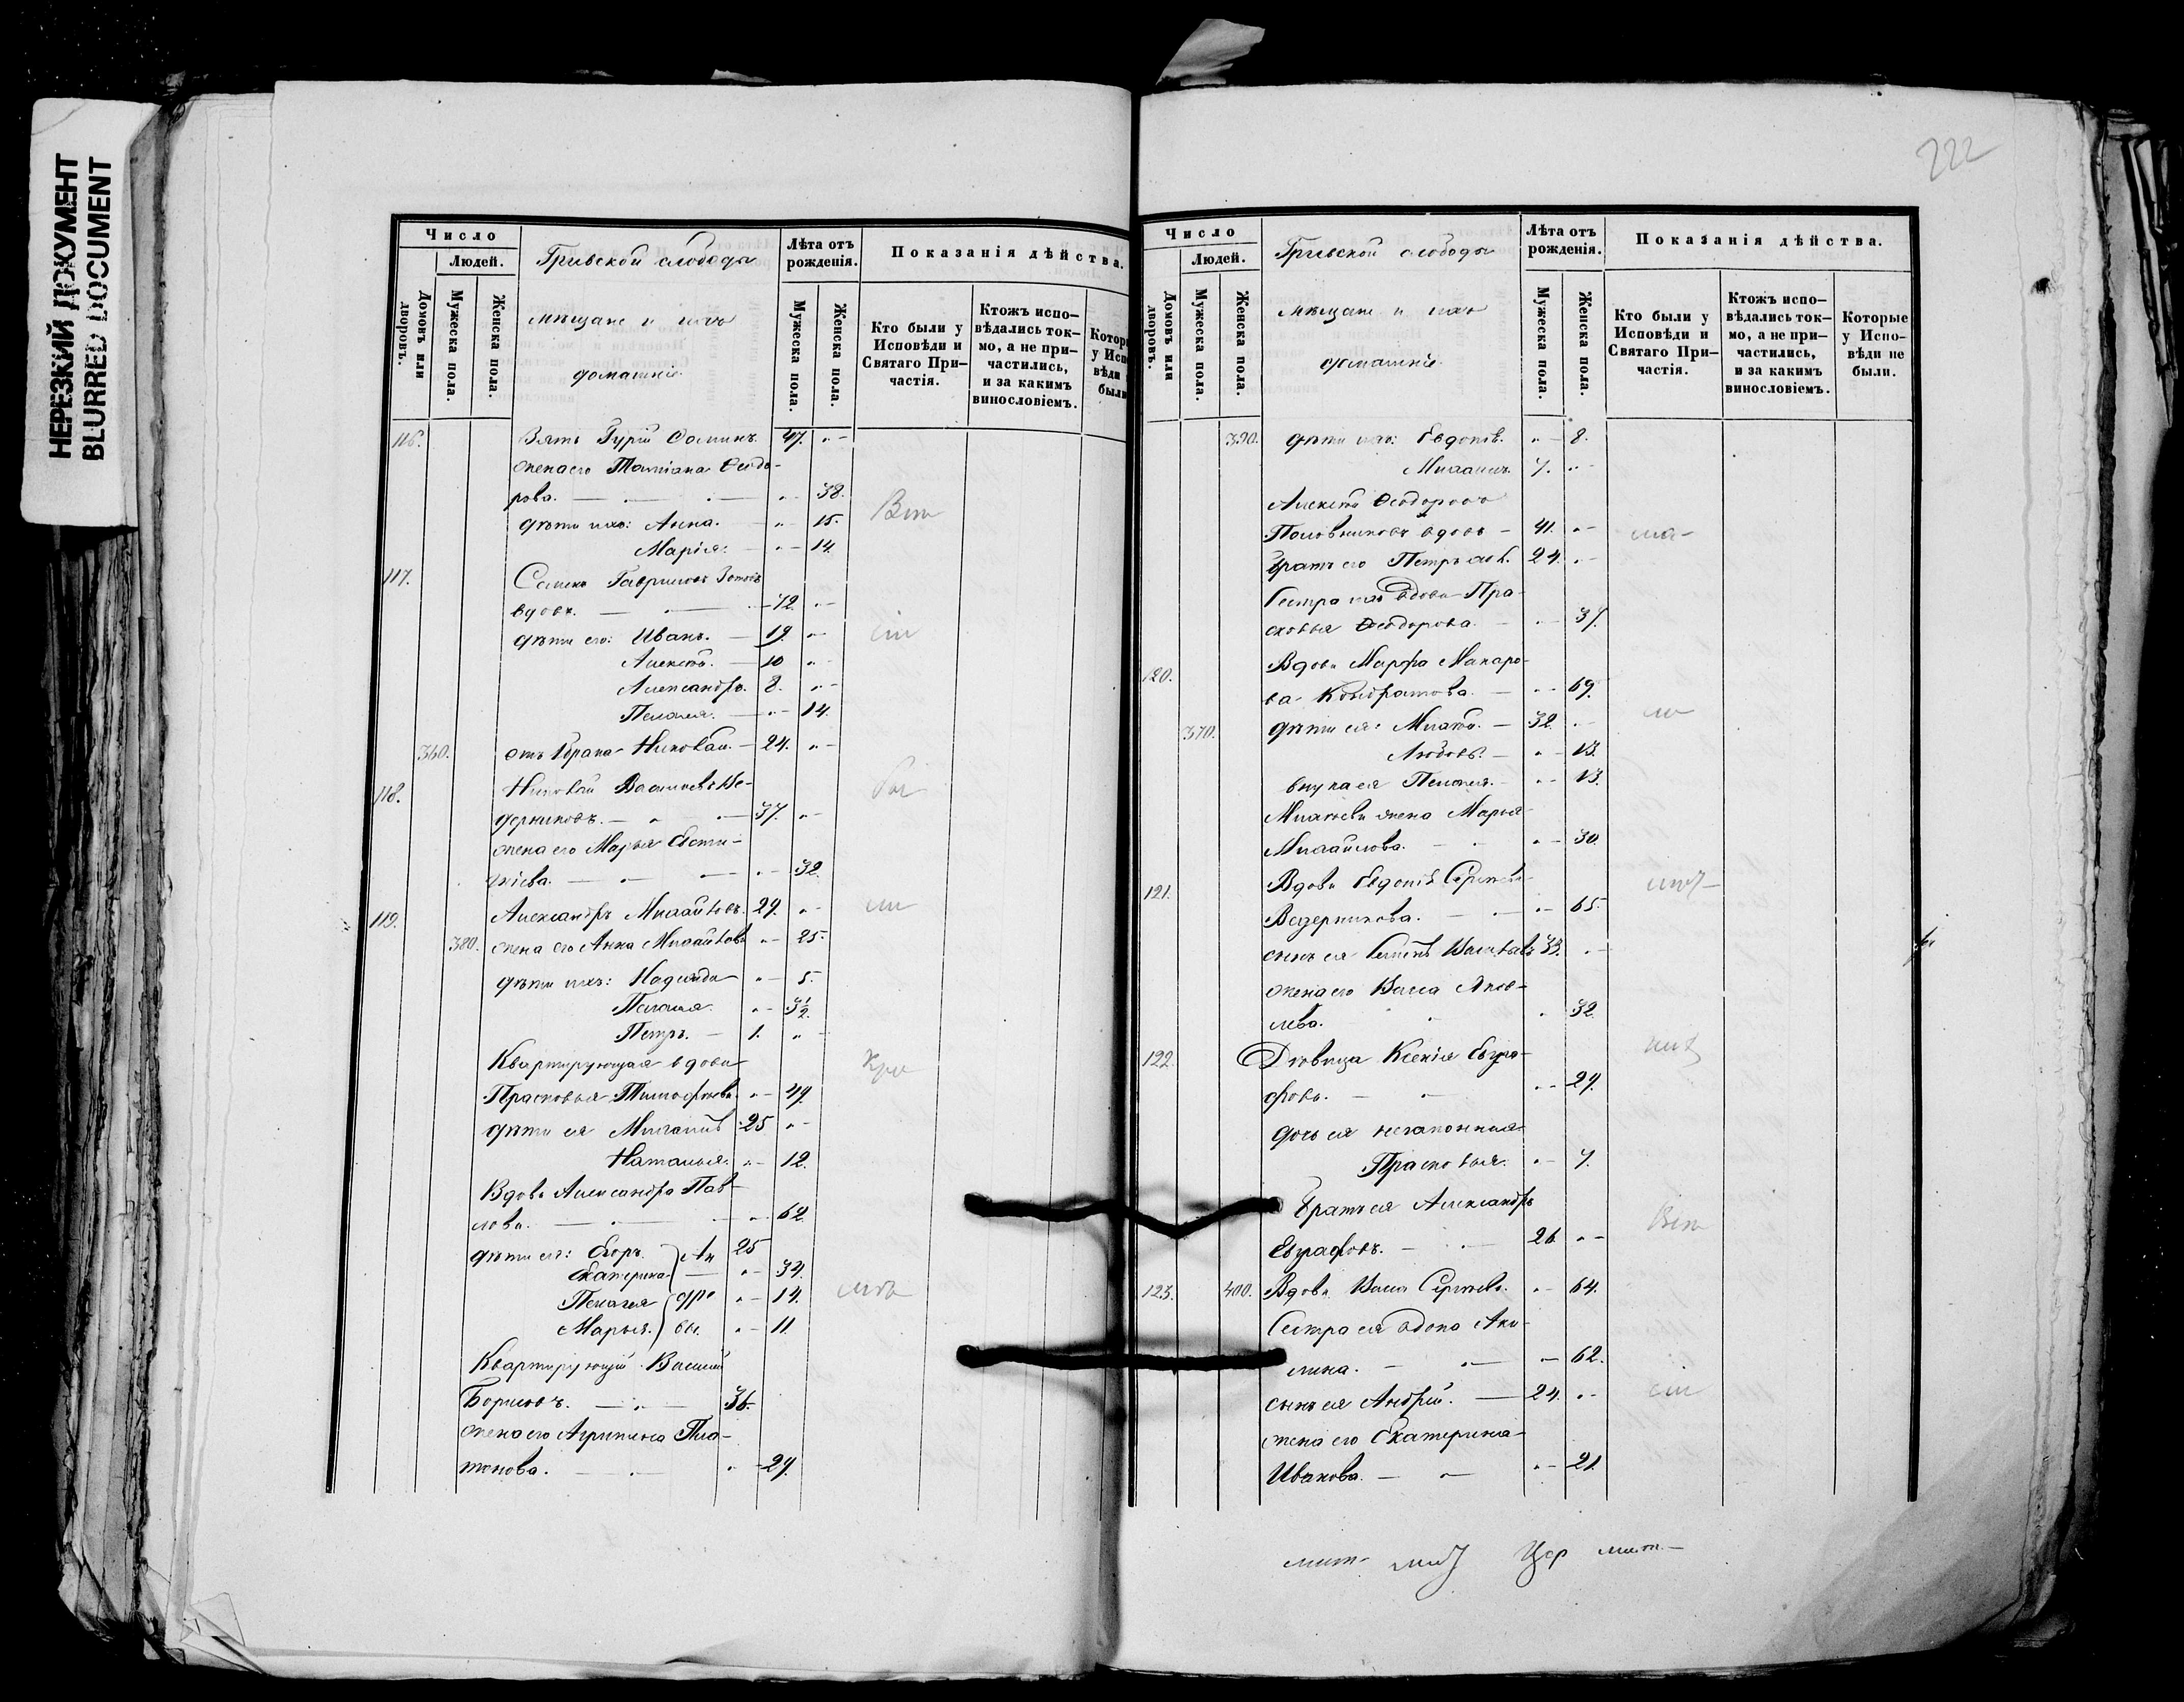 НЕРЕЗКИЙ ДОКУМЕНТ
BLURRED DOCUMENT
Число
Людей.
Домовъ или дворовъ.
Мужеска пола.
Женска пола.
Гривской слободы
мѣщане и ихъ
домашніе.
Лѣта отъ рожденія.
Мужеска пола.
Женска пола.
Показанія дѣйства.
Кто были у Исповѣди и Святаго Причастія.
Ктожъ исповѣдались токмо, а не причастились, и за какимъ винословіемъ.
116. Зять Гурій 47.
жена его Татіана Ѳеодо-
рова. 38.
дѣти ихъ: Анна. 15.
Марія. 14.
117. Гавриловъ
вдовъ. 72.
дѣти его: Иванъ. 19.
Алексѣй. 10
Александръ. 8.
Пелагея. 14.
360. отъ брата Николай. 24.
118. Николай
37.
жена его Марья Евсти-
32.
119. Александръ Михайловъ. 29.
380. жена его Анна Михайлова 25.
дѣти ихъ: Надежда 5.
Пелагея. 3½
Петръ. 1.
Квартирующая вдова
Прасковья Тимофѣева. 49.
дѣти ея Михаилъ 25
Наталья. 12.
Вдова Александра Пав-
лова. 62.
дѣти ея: Егоръ. Ан 25
Екатерина 34.
Пелагея дре 14.
Марья. вы. 11.
Квартирующій Василій
Борисовъ. 36.
жена его Агрипина Пла-
тонова. 29.
222
Число
Людей.
Домовъ или дворовъ.
Мужеска пола.
Женска пола.
Гривской слободы
мѣщане и ихъ
домашніе.
Лѣта отъ рожденія.
Мужеска пола.
Женска пола.
Показанія дѣйства.
Кто были у Исповѣди и Святаго Причастія.
Ктожъ исповѣдались токмо, а не причастились, и за какимъ винословіемъ.
Которые у Исповѣди не были.
390. дѣти ихъ: Евдокія. 8.
Михаилъ. 7.
Алексѣй Ѳеодоровъ
Половниковъ вдовъ 41.
братъ его Петръ 24.
Сестра ихъ вдова Пра-
сковья Ѳеодорова. 37.
120. Вдова Марфа Макаро-
ва Кондратова. 69.
370. дѣти ея: 32.
Любовь. 13.
внука ея Пелагея. 13.
жена Марья
Михайлова. 30.
121. Вдова Евдокія Сергѣева
Ведерникова. 65.
сынъ ея 33.
жена его Васса Яков-
лева. 32.
122. Дѣвица Ксенія Евгра-
фова. 29.
дочь ея незаконная
Прасковья. 7.
братъ ея Александръ
Евграфовъ. 26.
123. 400. Вдова Сергѣева. 64.
Сестра ея вдова Аку-
лина. 62.
сынъ ея Андрей. 24.
жена его Екатерина
Иванова. 21.